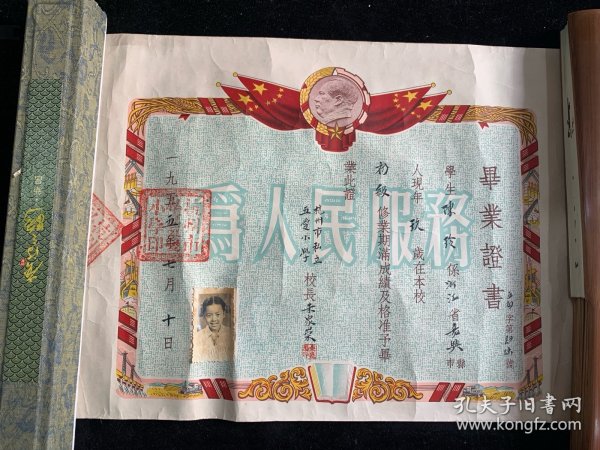 畢業證書
字第 號
學生陳 係浙江省嘉興縣市
人現年玖歲在本校
初級修業期滿成績及格准予畢
業此證
杭州市私立
小學校長
一九五五年七月十日
爲人民服務
孔夫子旧书网
www.kongfz.com